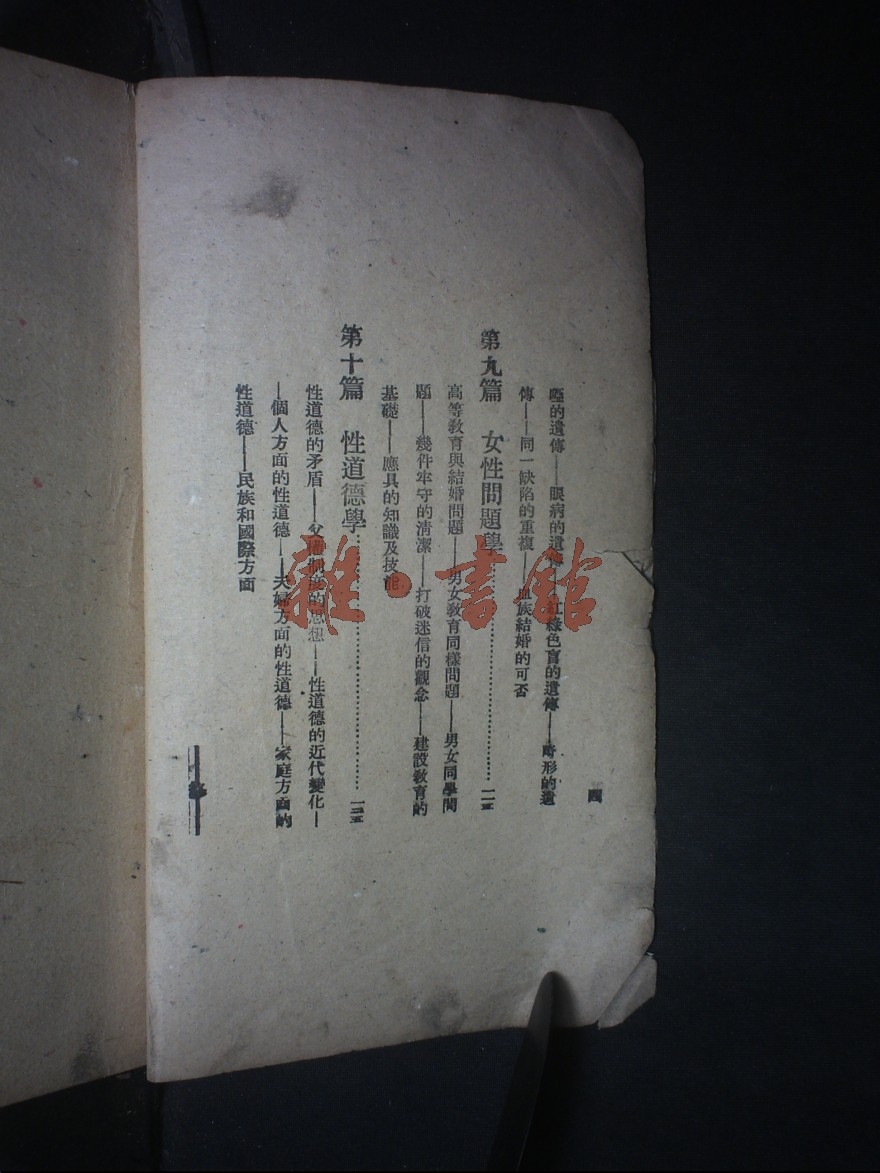 四
啞的遺傳——眼病的遺傳——紅綠色盲的遺傳——畸形的遺
傳——同一缺陷的重複——血族結婚的可否
第九篇 女性問題學……一一五
高等教育與結婚問題——男女教育同樣問題——男女同學問
題——幾件牢守的清潔——打破迷信的觀念——建設教育的
基礎——應具的知識及技能
第十篇 性道德學……一三五
性道德的矛盾——父權制度的思想——性道德的近代變化—
—個人方面的性道德——夫婦方面的性道德——家庭方面的
性道德——民族和國際方面
雜·書館